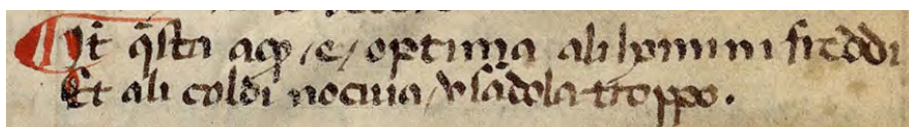 ¶ It̄ q̄sta acq̄ /e/ optima ali homini fredi
Et ali coldi nociua / vsãdola troppo.